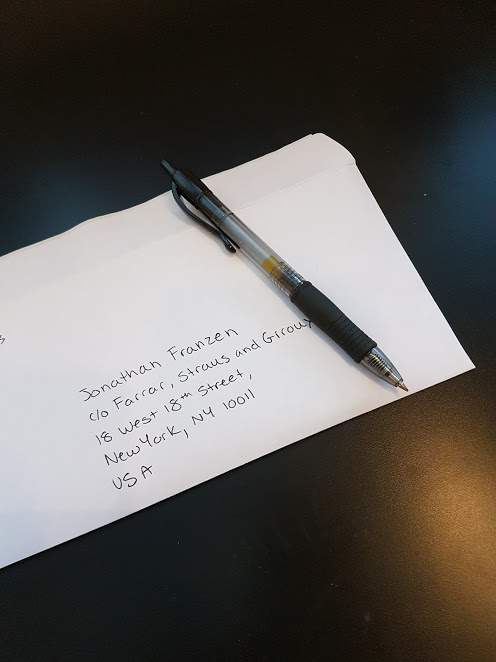 Jonathan Franzen
c/o Farrar, Straus and Giroux
18 West 18th Street,
New York, NY 10011
USA